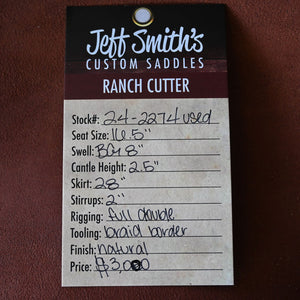 Jeff Smith's
CUSTOM SADDLES
RANCH CUTTER
Stock#: 24-2274 used
Seat Size: 16.5"
Swell: BCM 8"
Cantle Height: 2.5"
Skirt: 28"
Stirrups: 2"
Rigging: full double
Tooling: braid border
Finish: natural
Price: $3,000